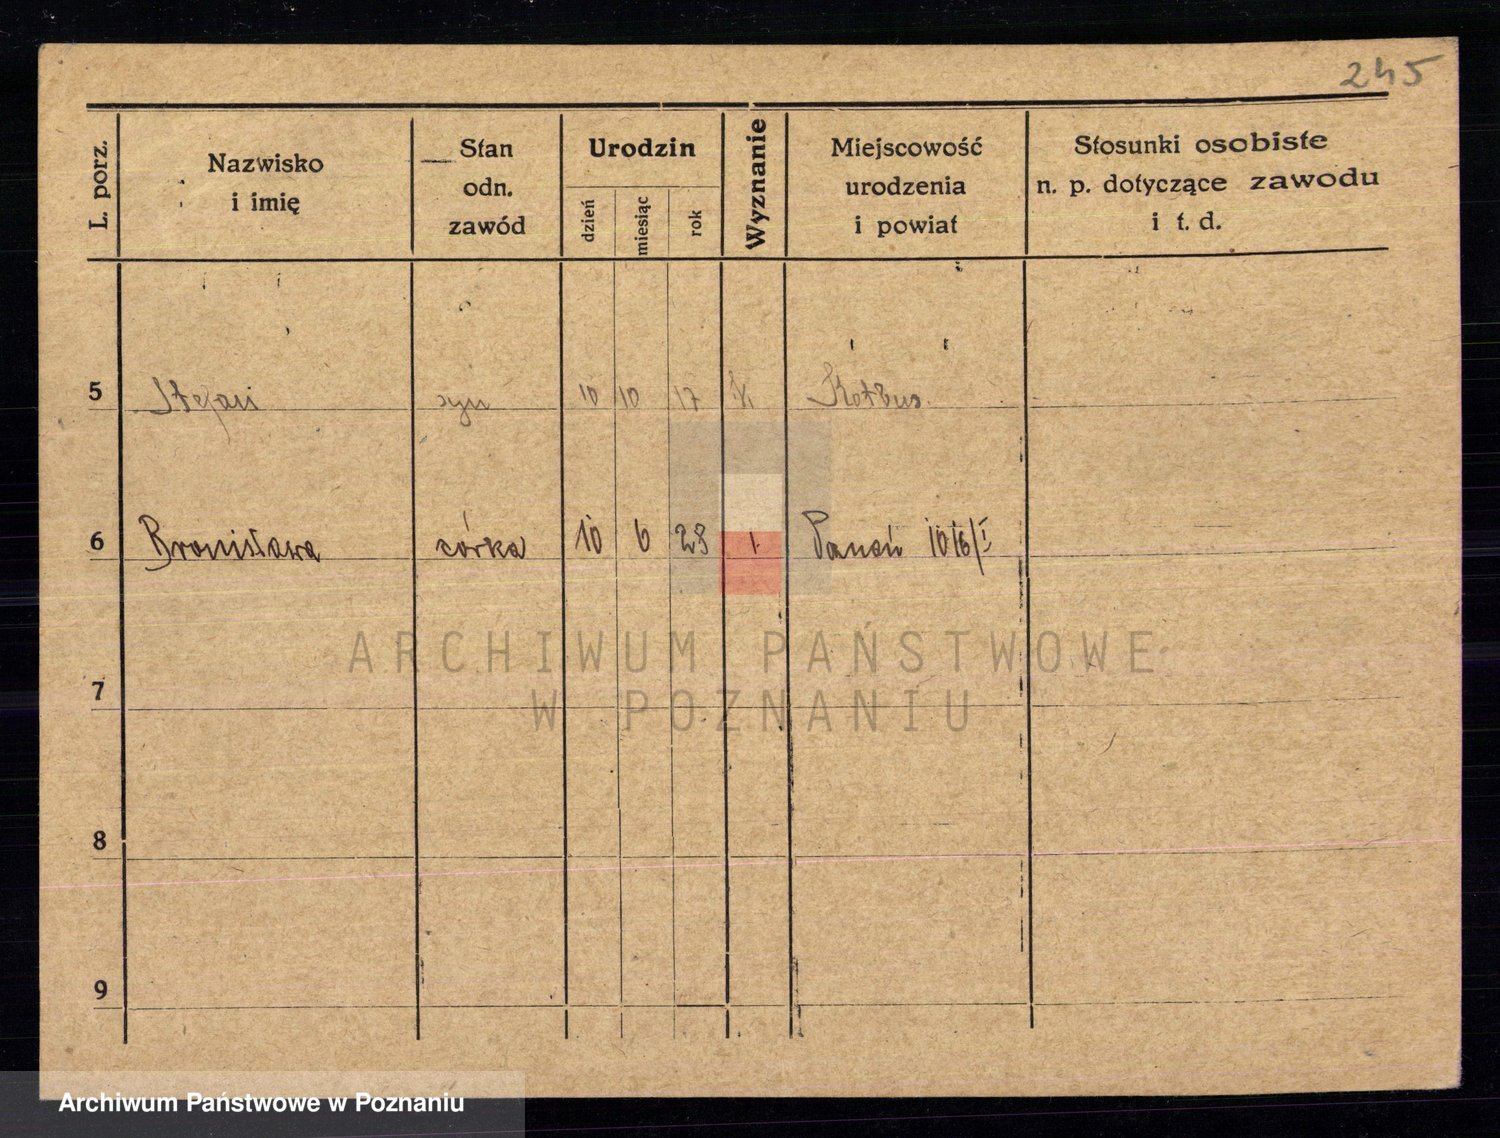 245
L. porz.
Nazwisko
i imię
Stan
odn.
zawód
Urodzin
dzień
miesiąc
rok
Wyznanie
Miejscowość
urodzenia
i powiat
Stosunki osobiste
n. p. dotyczące zawodu
i t. d.
5 Stefan syn 10 10 17 Kotbus
6 Bronisława córka 10 6 23 Poznań
7
8
9
ARCHIWUM PAŃSTWOWE
W POZNANIU
Archiwum Państwowe w Poznaniu